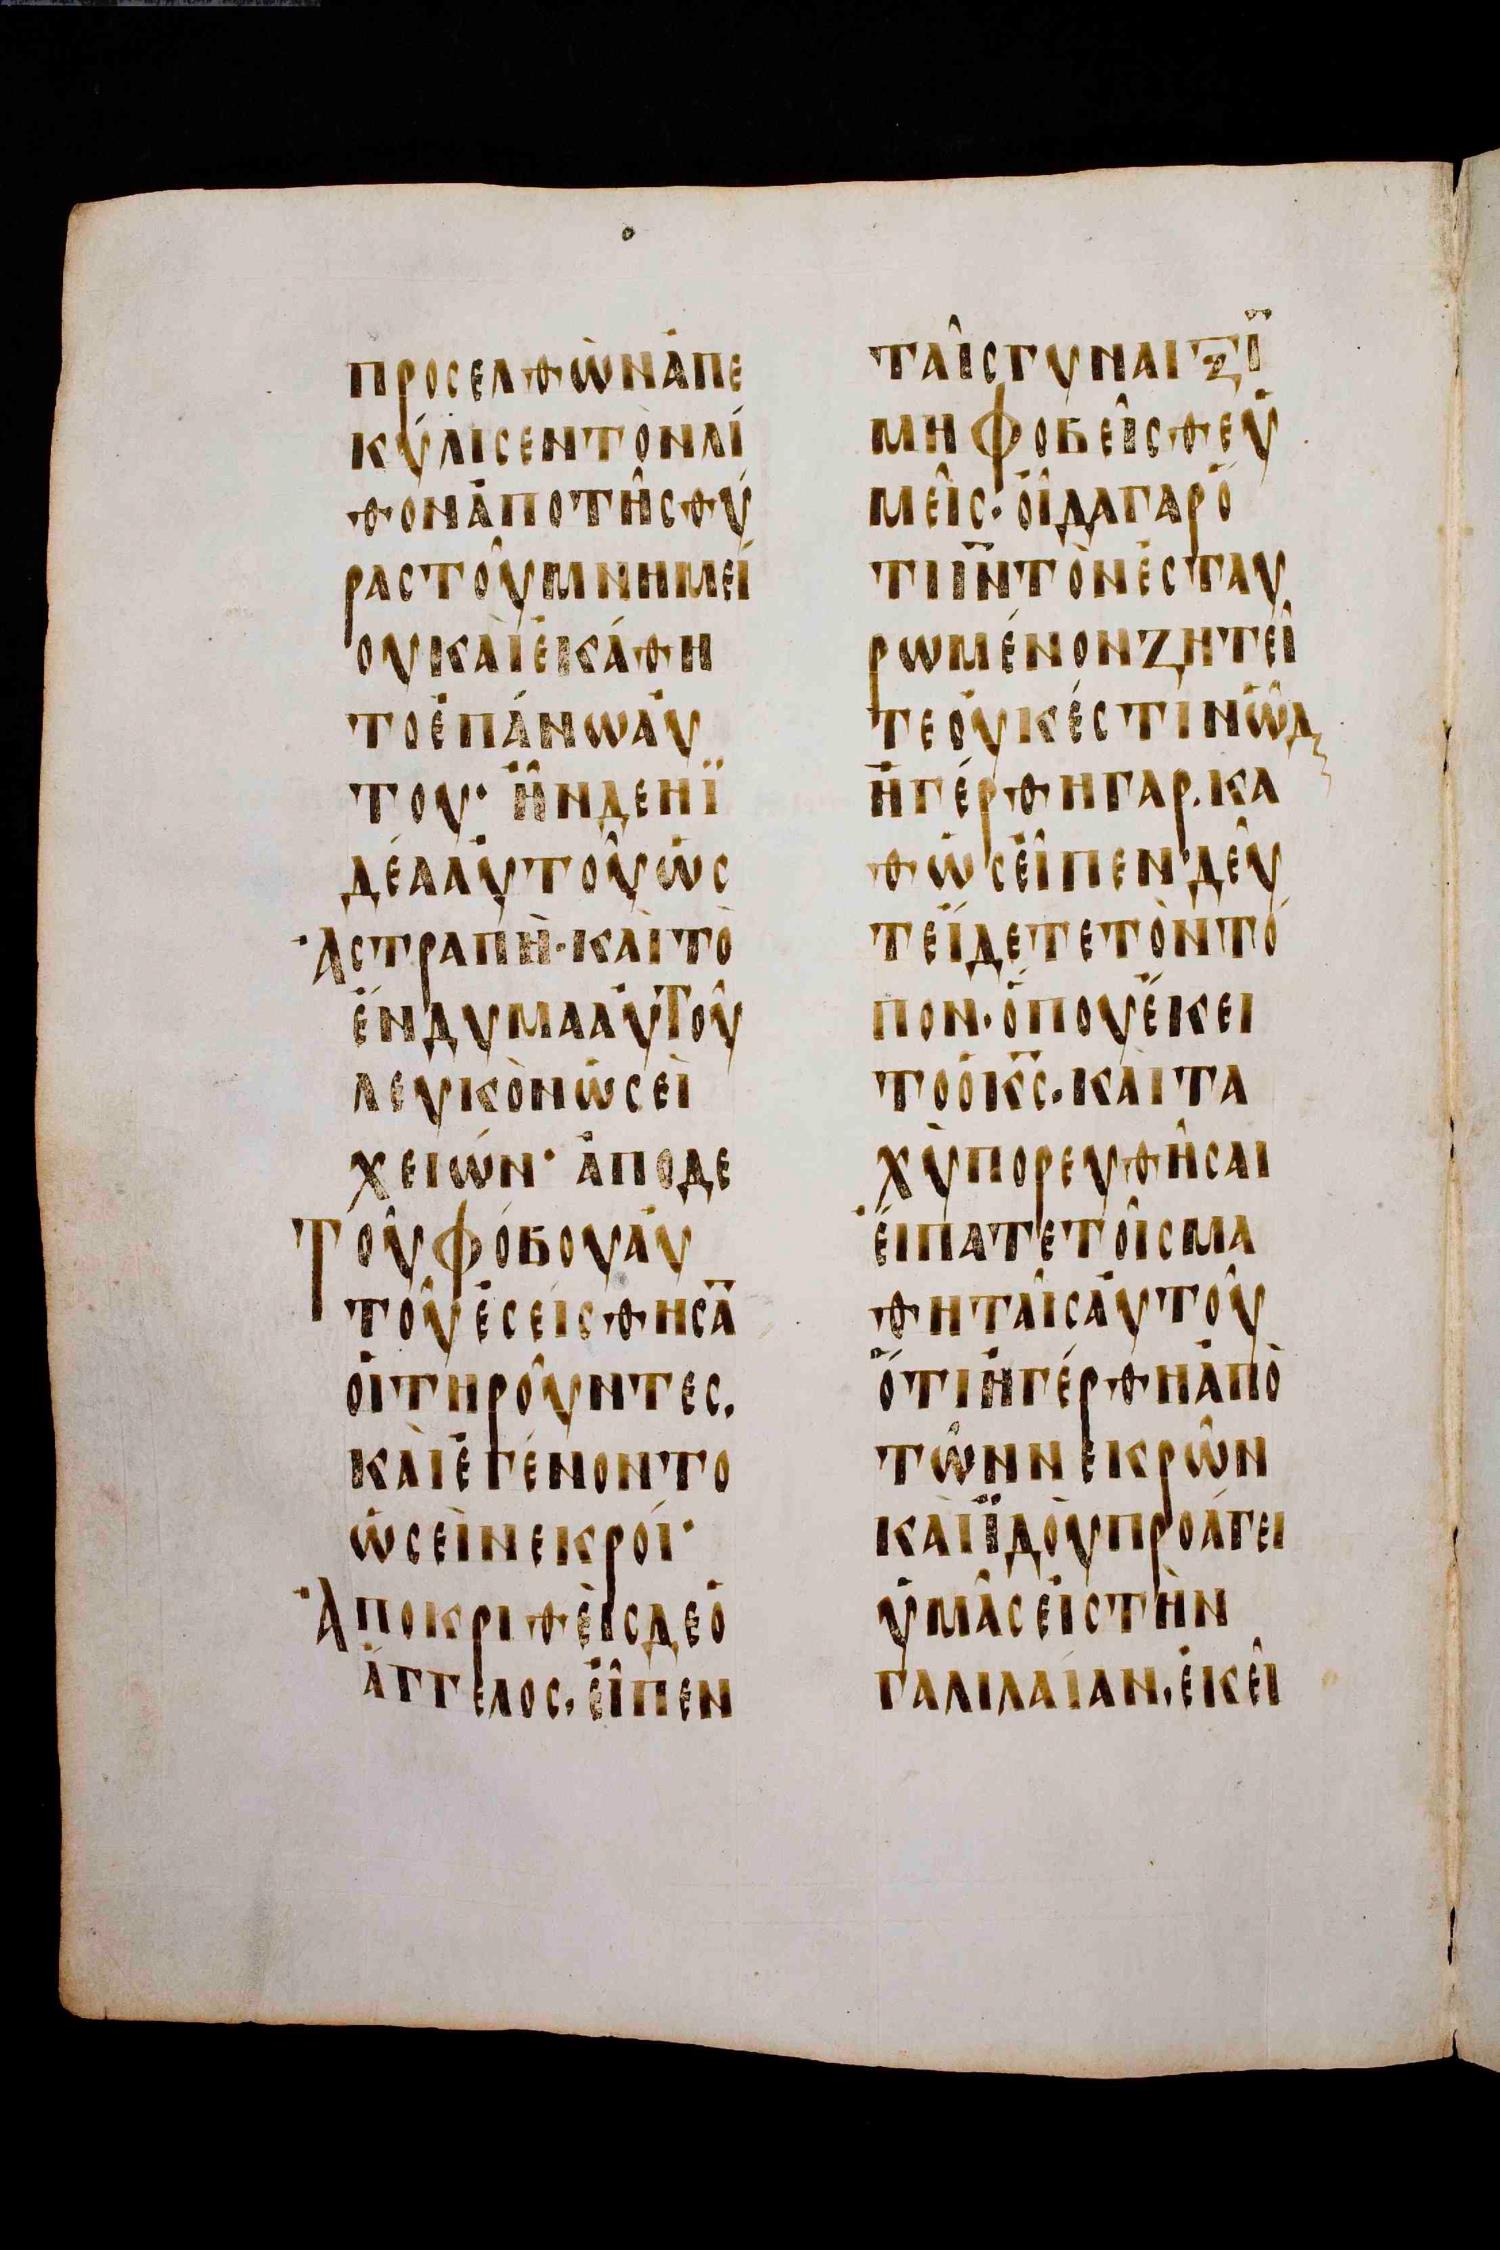 προσελθὼναπε
κύλισεντὸνλί
θοναποτῆσθύ
ραστοῦμνημεί
ουκαὶεκάθη
τοεπάνωαυ
του· ἦνδεηϊ
δέααυτοῦωσ
Αστραπὴ·καὶτὸ
ἔνδυμααυτοῦ
λευκὸνωσεὶ
χειών· αποδε
Τοῦφόβουαυ
τοῦεσείσθησᾱ
οιτηροῦντεσ.
καὶεγένοντο
ωσεὶνεκροί·
Αποκριθεὶσδεο
άγγελοσ, εἶπεν
ταῖσγυναιξῒ
μηφοβεῖσθευ
μεῖσ· οἶδαγαρό
τιῑν̄τὸνεσταυ
ρωμένονζητεῖ
τεουκέστινῶδε
ηγέρθηγαρ. κα
θωσεῖπεν·δεῦ
τεΐδετετὸντό
πον· όπουέκει
τοοκ̄σ̄. καὶτα
χὺπορευθῆσαι
είπατετοῖσμα
θηταῖσαυτοῦ
ότιηγέρθηαπὸ
τῶννεκρῶν
καὶϊδοὺπροάγει
υμᾶσειστὴν
γαλιλαίαν, εκεῖ